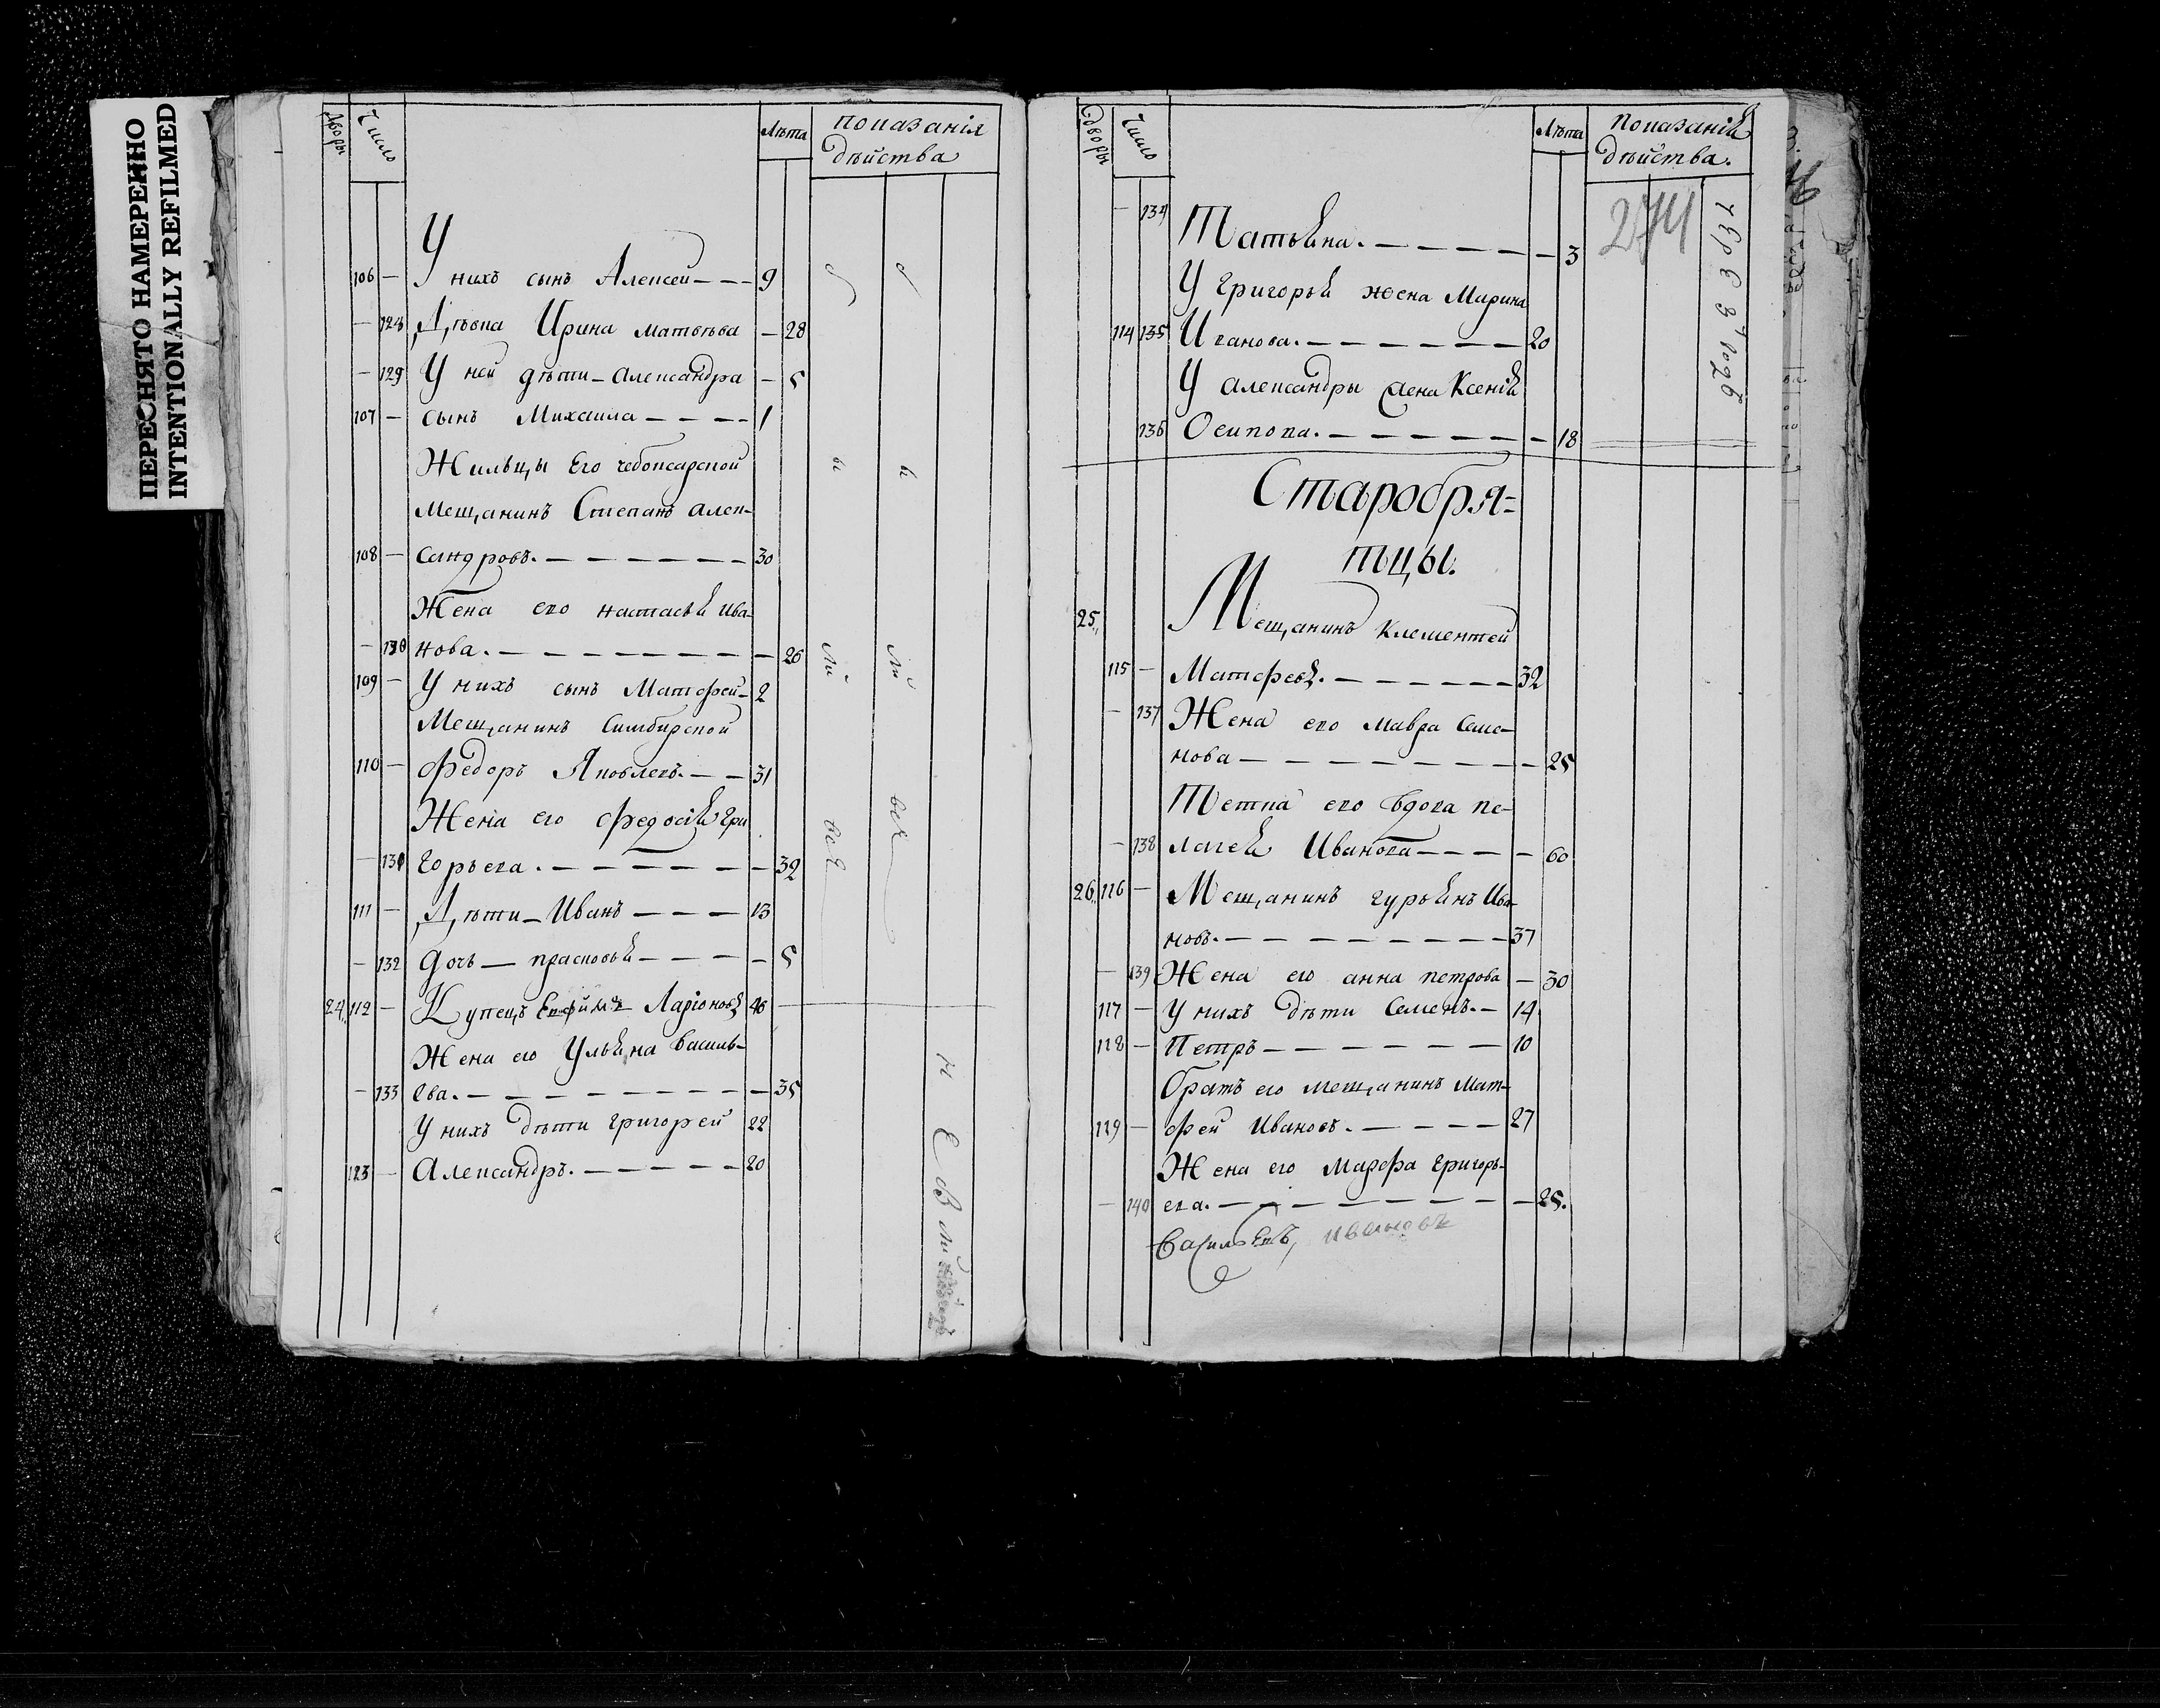 ПЕРЕСНЯТО НАМЕРЕННО
INTENTIONALLY REFILMED
Дворы Число Лѣта показанія
дѣйства
У
106 — нихъ сынъ Алексей — — — 9
— 128 Дѣвка Ирина матвѣева — 28
— 129 У ней дѣти — александра — 5
107 — сынъ Михаила — — — — 1
Жильцы его чебоксарской
мещанинъ Степанъ алек-
108 — сандровъ. — — — — — — — 30
Жена его настасья ива-
— 130 нова. — — — — — — — — — 26
109 — У нихъ сынъ Матофей — 2
Мещанинъ Симбирской
110 — Федоръ Яковлевъ. — — 31
Жена его федосія гри
— 131 горьева. — — — — — — — 32
111 — Дѣти — Иванъ — — — 13
— 132 дочь — прасковья — — — — 5
24. 112 — Купецъ Ларіоновъ 46 —
Жена его Ульяна василь-
— 133 ева. — — — — — — — — — 35
У нихъ дѣти григорей 22
123 — Александръ. — — — — — 20
были всѣ
были всѣ
не были
Дворы Число Лѣта показанія
дѣйства.
274
— 134 Татьяна. — — — — — — 3
У григорья жена Марина
114 135 Иванова. — — — — — — 20
У александры жена Ксенія
136 Осипова. — — — — — — — 18
Старобря-
тцы.
25. Мещанинъ клементей
115 — Матофеевъ. — — — — — — 32
— 137 Жена его мавра семе-
нова — — — — — — — — — 25
Тетка его вдова пе-
— 138 лагея Иванова — — — — 60
26. 116 — Мещанинъ гурьянъ Ива-
новъ. — — — — — — — — 37
— 139 Жена его анна петрова — 30
117 — У нихъ дѣти семенъ. — 14
118 — Петръ — — — — — — 10
братъ его мещанинъ мат-
119 — фей ивановъ. — — — — 27
Жена его марфа григорь-
— 140 ева. — — — — — — — — 25.
ивановъ